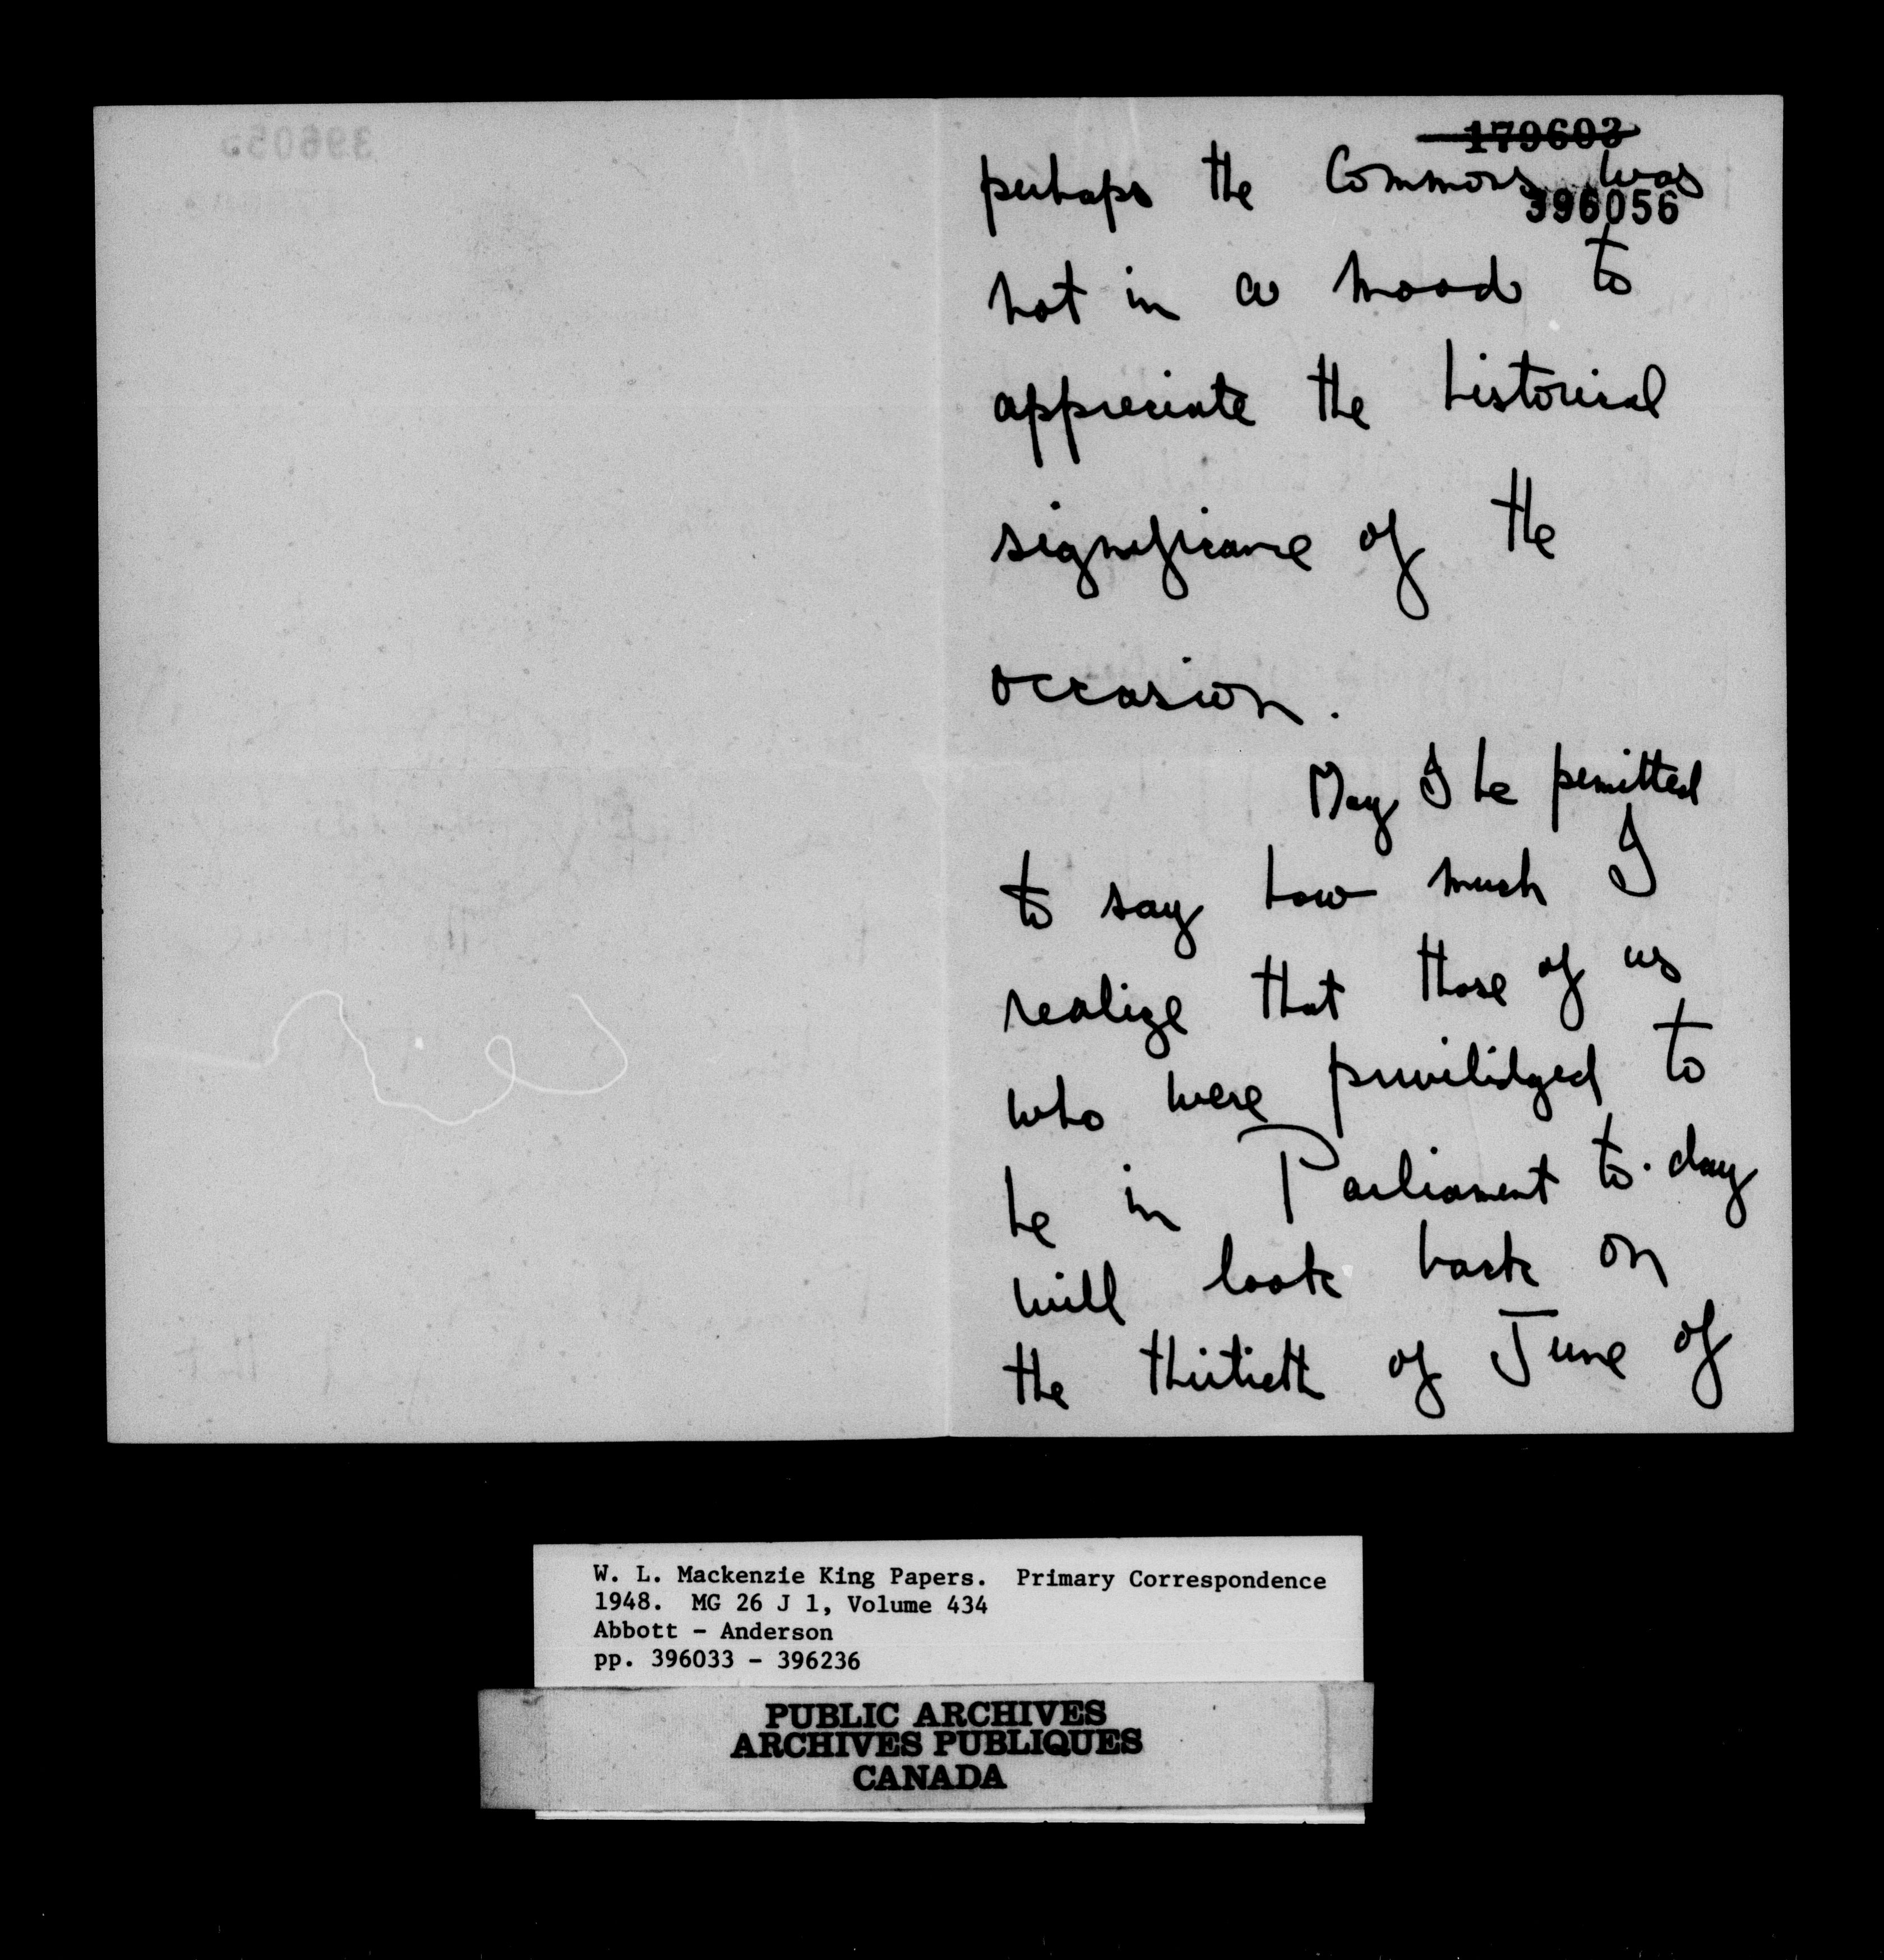 179603
396056
perhaps the Commons was
not in a mood to
appreciate the historical
significance of the
occasion.
May I be permitted
to say how much I
realize that those of us
who were privilidged to
be in Parliament to-day
will look back on
the thirtieth of June of
W. L. Mackenzie King Papers. Primary Correspondence
1948. MG 26 J 1, Volume 434
Abbott - Anderson
pp. 396033 - 396236
PUBLIC ARCHIVES
ARCHIVES PUBLIQUES
CANADA